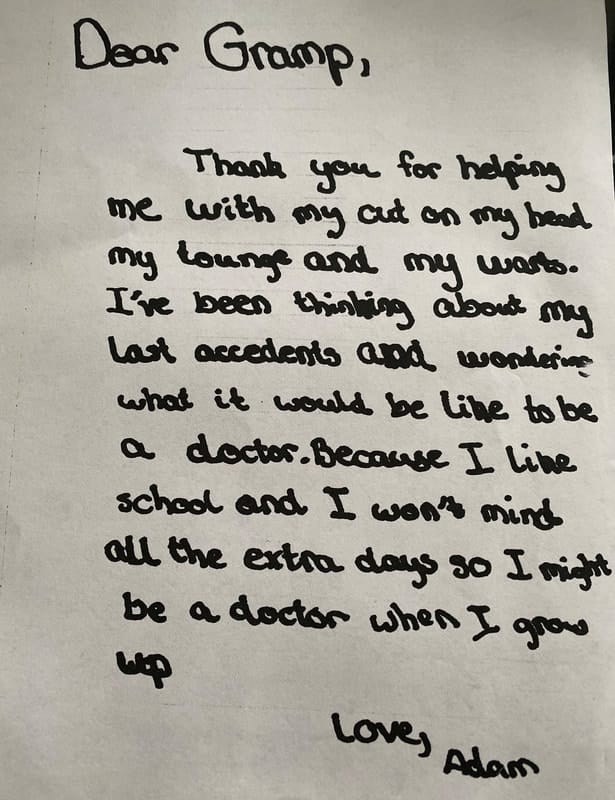 Dear Gramp,
Thank you for helping
me with my cut on my head
my tounge and my warts.
I've been thinking about my
last accedents and wondering
what it would be like to be
a doctor. Because I like
school and I won't mind
all the extra days so I might
be a doctor when I grow
up
Love,
Adam